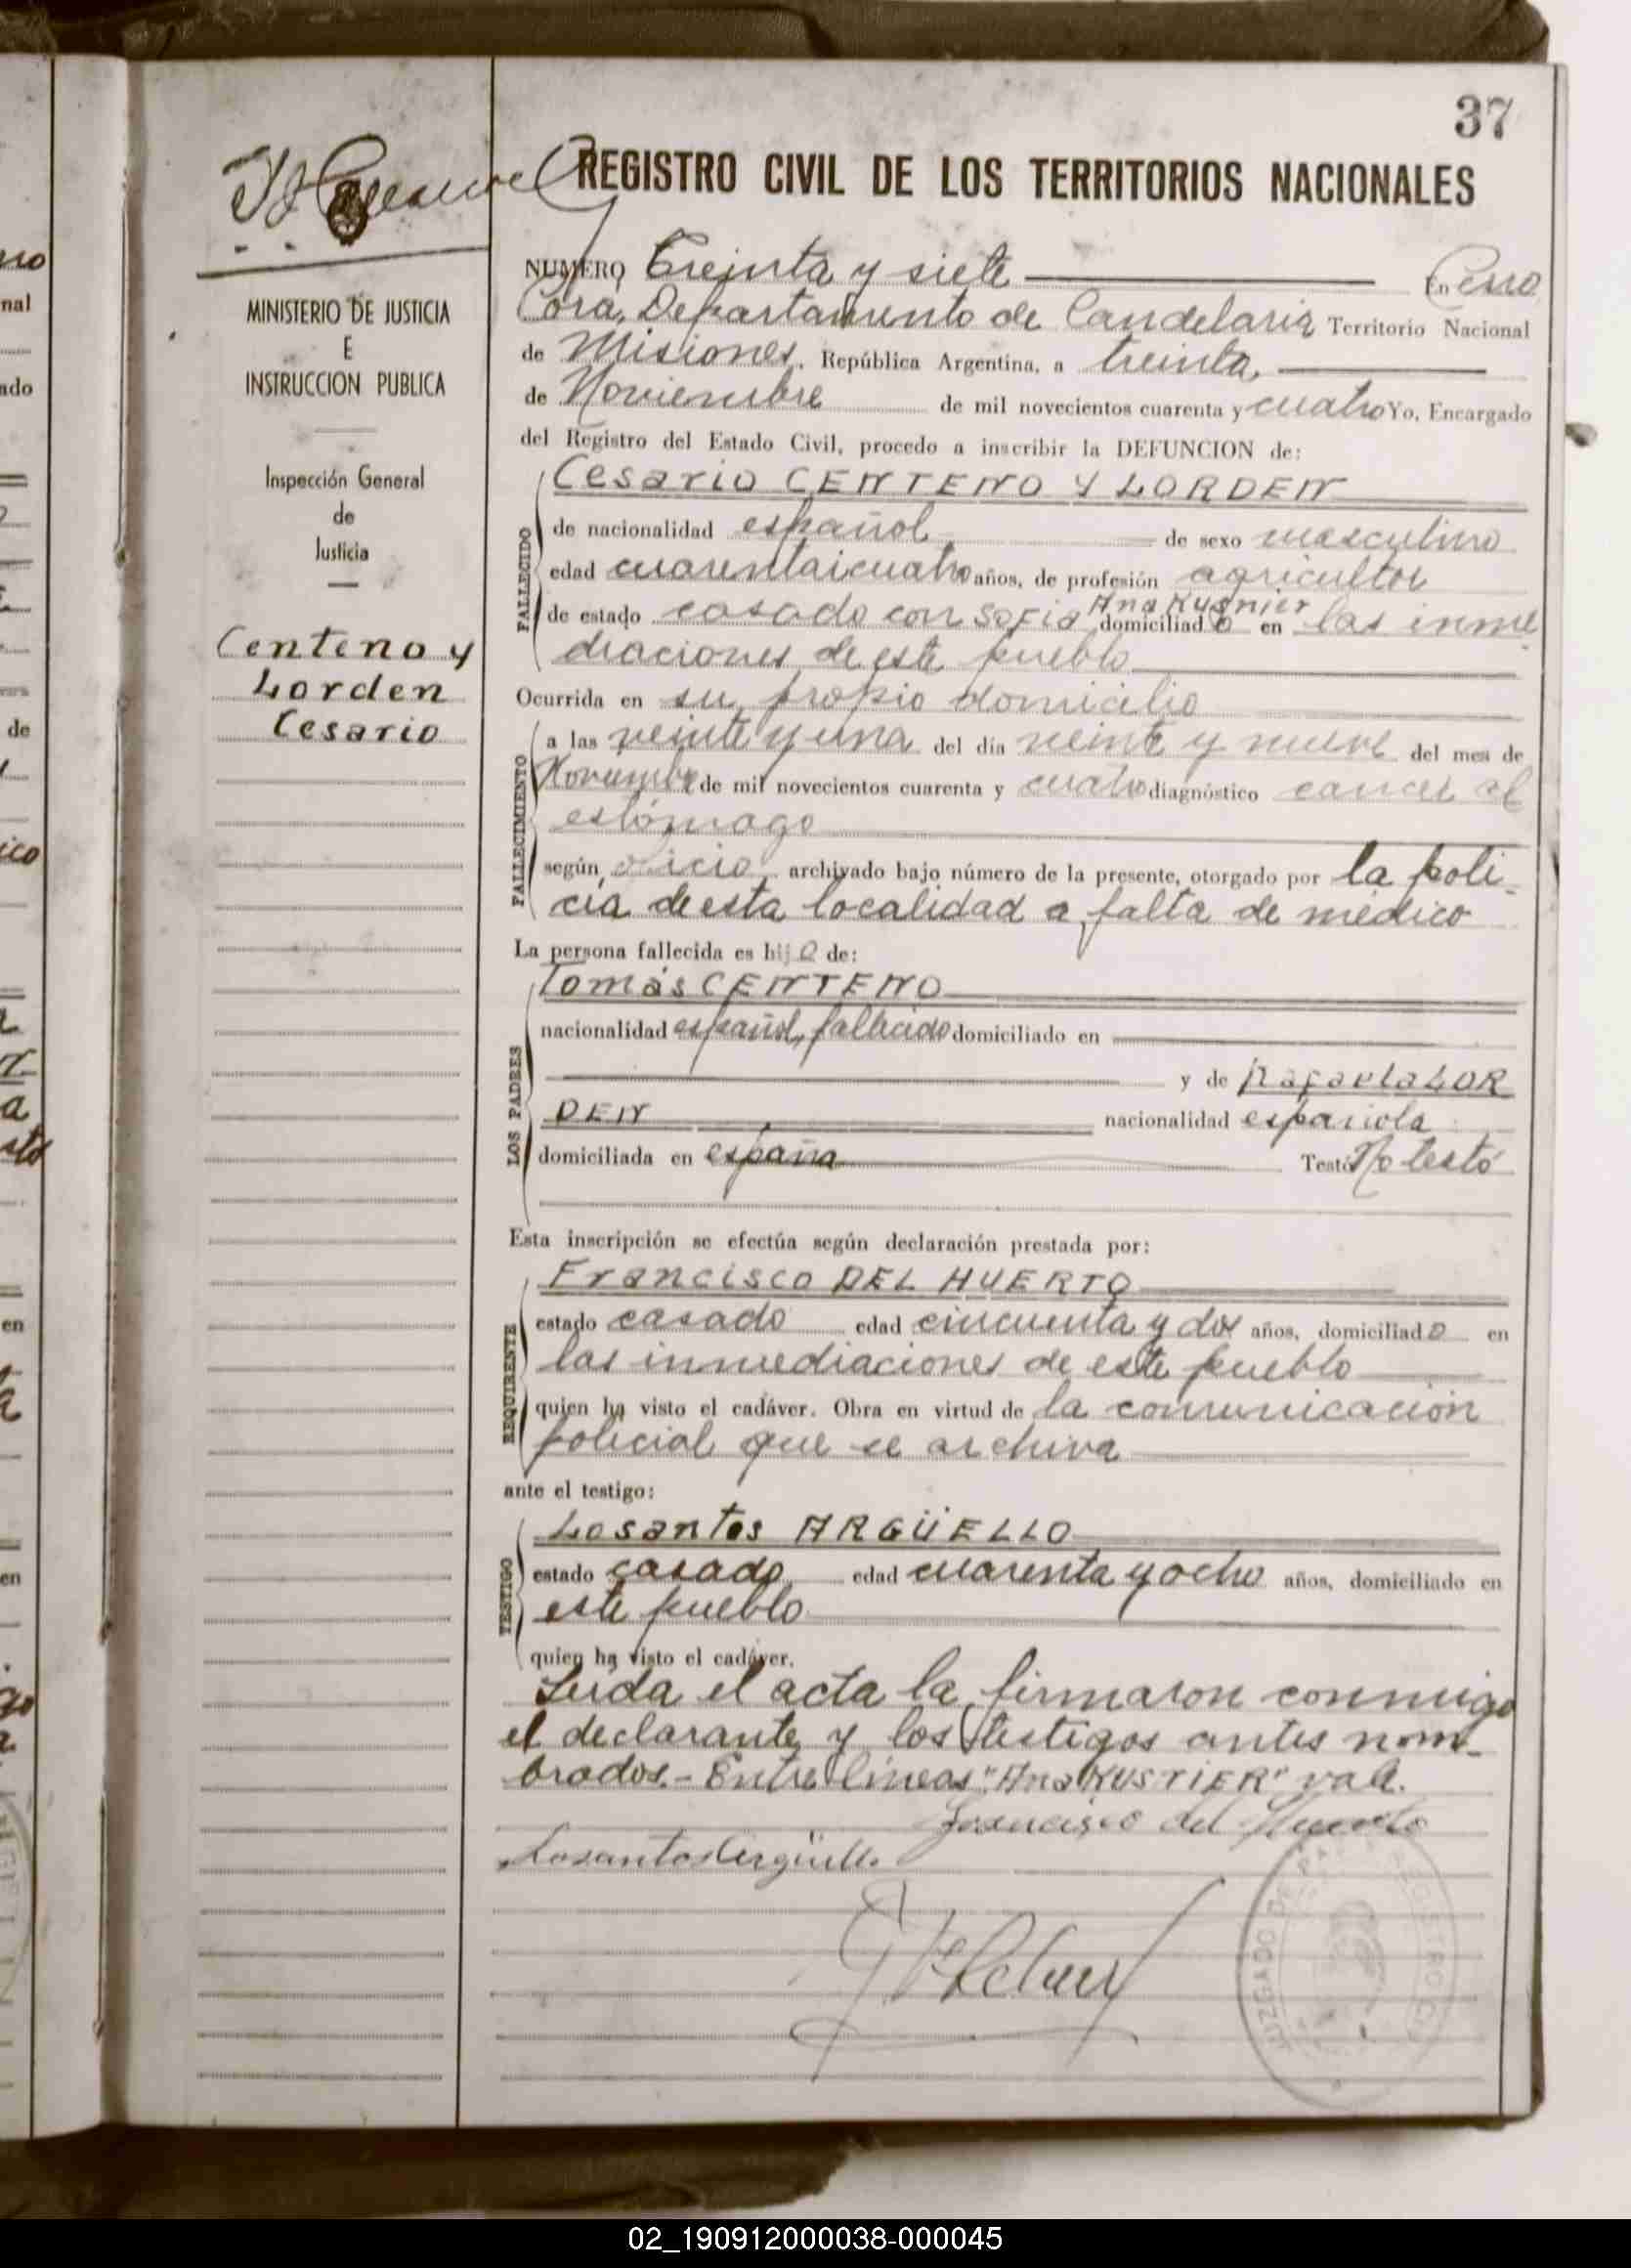 37
REGISTRO CIVIL DE LOS TERRITORIOS NACIONALES
MINISTERIO DE JUSTICIA
E
INSTRUCCION PUBLICA
Inspección General
de
Justicia
Centeno y
Lorden
Cesario
NUMERO Treinta y siete En Cerro
Corá, Departamento de Candelaria Territorio Nacional
de Misiones, República Argentina, a treinta,
de Noviembre de mil novecientos cuarenta y cuatro Yo, Encargado
del Registro del Estado Civil, procedo a inscribir la DEFUNCION de:
FALLECIDO
Cesario CENTENO Y LORDEN
de nacionalidad español, de sexo masculino
edad cuarentaicuatro años, de profesión agricultor
Ana Kusnier
de estado casado con Sofia domiciliado en las inme
diaciones de este pueblo
Ocurrida en su propio domicilio
FALLECIMIENTO
a las veinte y una del día veinte y nueve del mes de
Noviembre de mil novecientos cuarenta y cuatro diagnóstico cancer al
estómago
según, oficio, archivado bajo número de la presente, otorgado por la poli-
cia de esta localidad a falta de médico
La persona fallecida es hijo de:
LOS PADRES
Tomás CENTENO
nacionalidad español, fallecido domiciliado en
y de Rafaela LOR
DEN nacionalidad española
domiciliada en españa Testó No testó
Esta inscripción se efectúa según declaración prestada por:
REQUIRENTE
Francisco DEL HUERTO
estado casado edad cincuenta y dos años, domiciliado en
las inmediaciones de este pueblo
quien ha visto el cadáver. Obra en virtud de la comunicación
policial que se archiva
ante el testigo:
TESTIGO
Losantos ARGÜELLO
estado casado edad cuarenta y ocho años, domiciliado en
este pueblo
quien ha visto el cadáver.
Leida el acta la firmaron conmigo
el declarante y los testigos antes nom-
brados.- Entre lineas "Ana KUSNIER" vale.
Francisco del Huerto
Losantos Argüello
JUZGADO DE PAZ REGISTRO CI
02_190912000038-000045